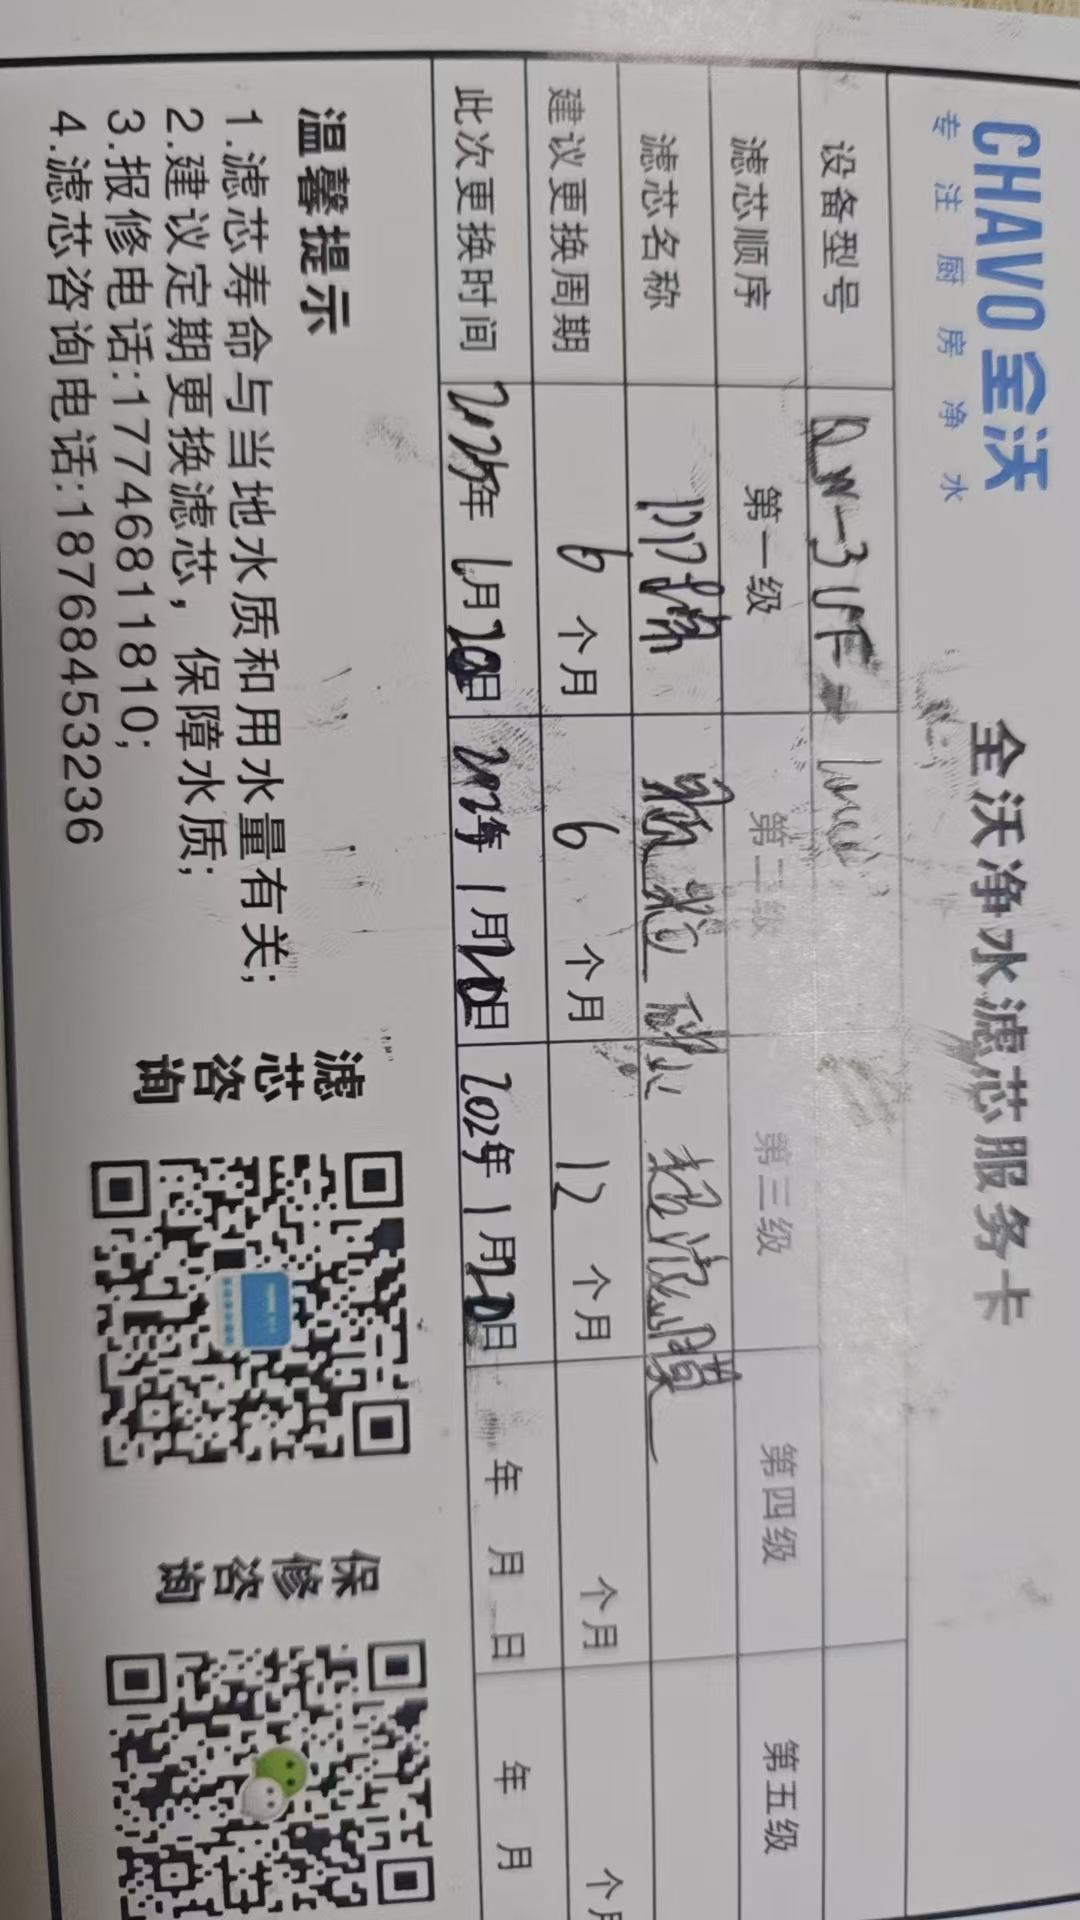 CHAVO全沃
专注厨房净水
全沃净水滤芯服务卡
设备型号 QW-3UF-
滤芯顺序 第一级 第二级 第三级 第四级 第五级
滤芯名称 PP棉 颗粒 超滤膜
建议更换周期 6个月 6个月 12个月 个月 个月
此次更换时间 年1月20日 年1月20日 年1月20日 年 月 日 年 月
温馨提示
1.滤芯寿命与当地水质和用水量有关;
2.建议定期更换滤芯，保障水质;
3.报修电话:17746811810;
4.滤芯咨询电话:18768453236
滤芯咨询
保修咨询